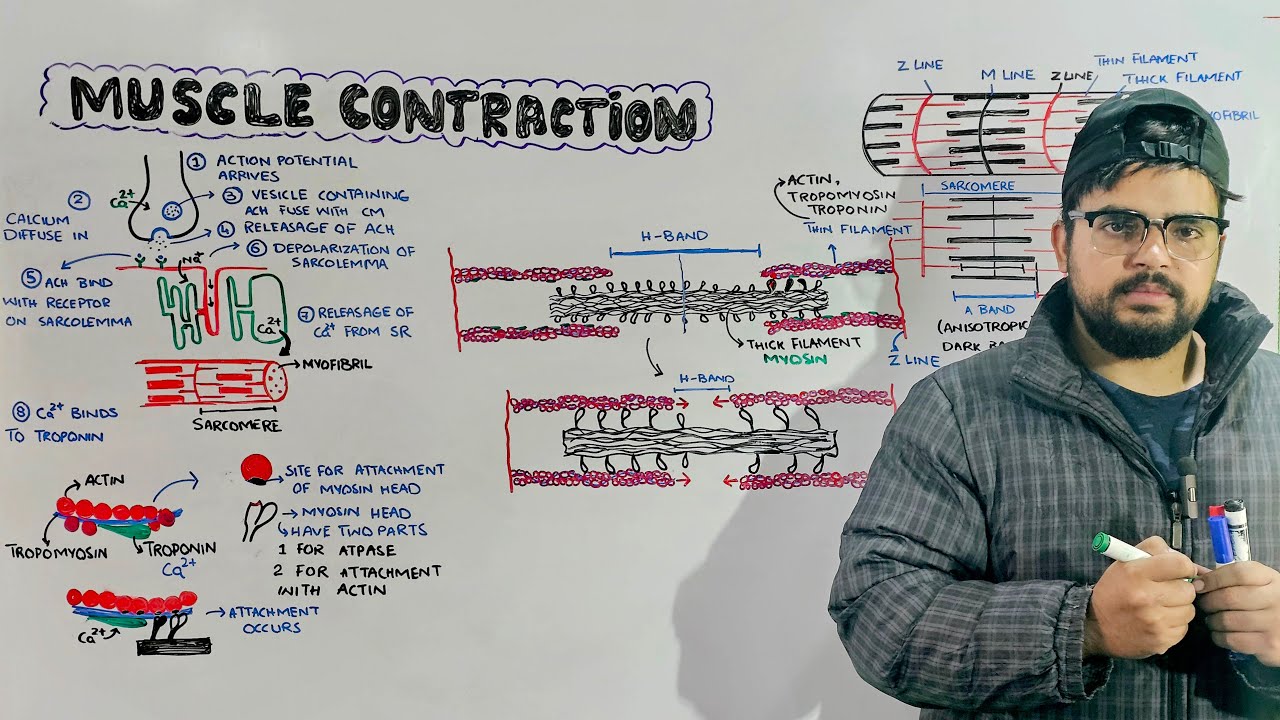 MUSCLE CONTRACTION
① ACTION POTENTIAL
ARRIVES
②
CALCIUM
DIFFUSE IN
Ca2+
③ VESICLE CONTAINING
ACH FUSE WITH CM
④ RELEASAGE OF ACH
⑤ ACH BIND
WITH RECEPTOR
ON SARCOLEMMA
Na+
⑥ DEPOLARIZATION OF
SARCOLEMMA
Ca2+
⑦ RELEASAGE OF
Ca2+ FROM SR
MYOFIBRIL
SARCOMERE
⑧ Ca2+ BINDS
TO TROPONIN
ACTIN
TROPOMYOSIN
TROPONIN
Ca2+
SITE FOR ATTACHMENT
OF MYOSIN HEAD
MYOSIN HEAD
HAVE TWO PARTS
1 FOR ATPASE
2 FOR ATTACHMENT
WITH ACTIN
Ca2+
ATTACHMENT
OCCURS
H-BAND
ACTIN,
TROPOMYOSIN
TROPONIN
THIN FILAMENT
THICK FILAMENT
MYOSIN
Z LINE
H-BAND
Z LINE
M LINE
Z LINE
THIN FILAMENT
THICK FILAMENT
YOFIBRIL
SARCOMERE
A BAND
(ANISOTROPIC
DARK BA